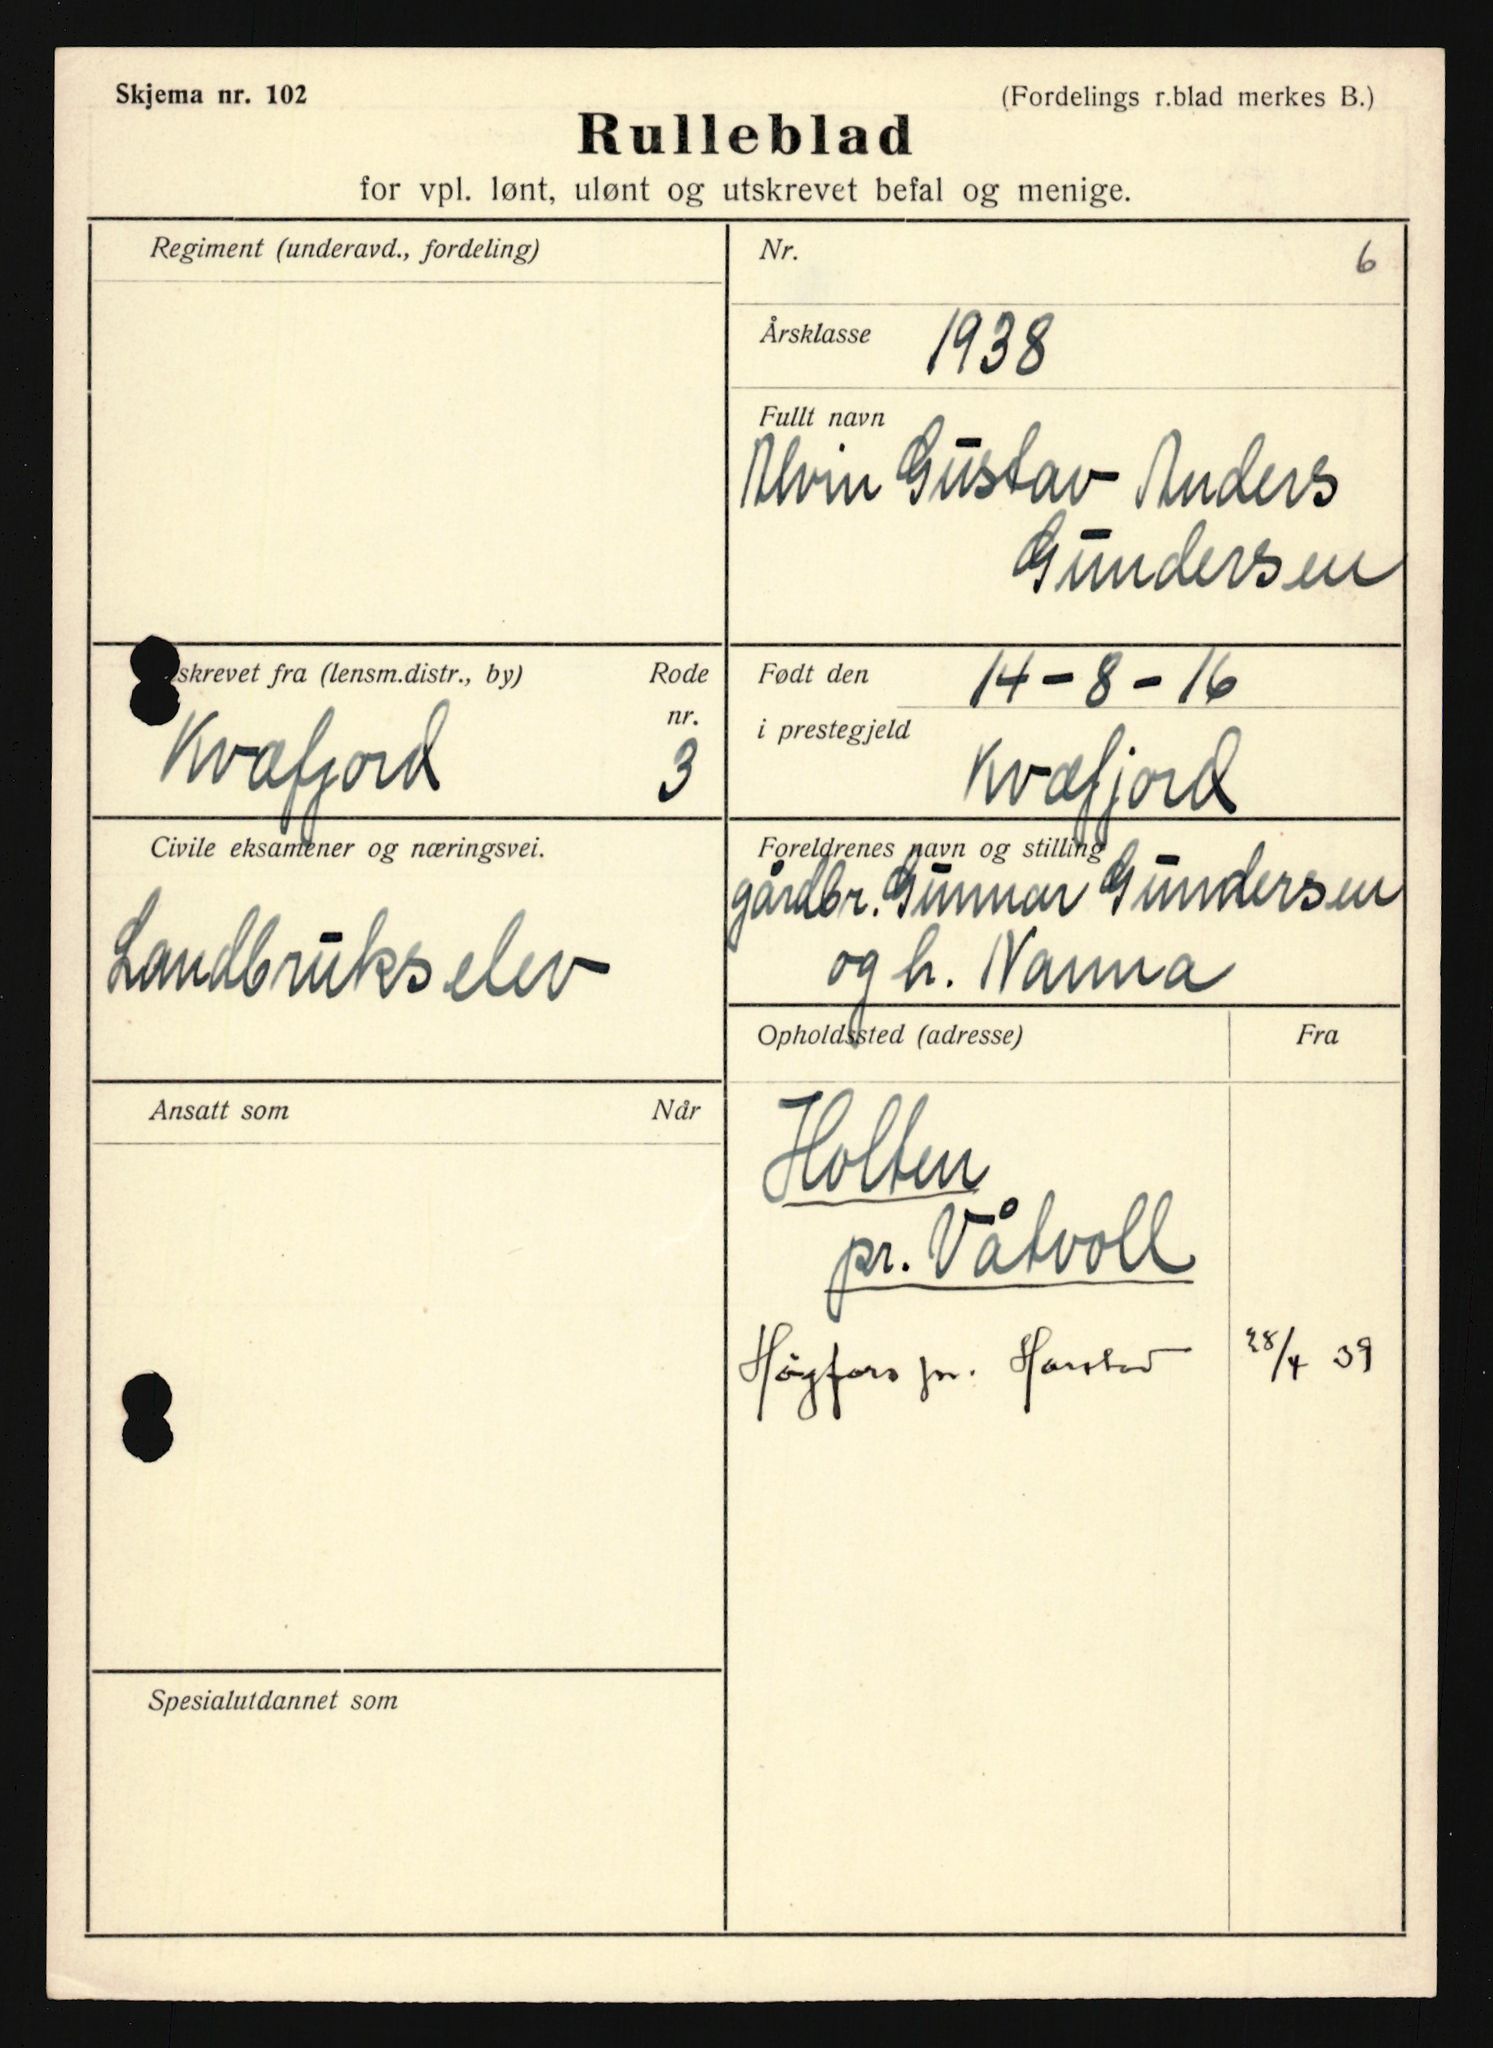 Skjema nr. 102
(Fordelings r.blad merkes B.)
Rulleblad
for vpl. lønt, ulønt og utskrevet befal og menige.
Regiment (underavd., fordeling)
Nr.
6
Årsklasse 1938
Fullt navn
Alvin Gustav Anders
Gundersen
skrevet fra (lensm.distr., by)
Rode
nr.
Kvæfjord 3
Født den 14-8-16
i prestegjeld
Kvæfjord
Civile eksamener og næringsvei.
Landbrukselev
Foreldrenes navn og stilling
gårdbr. Gunnar Gundersen
og h. Nanna
Opholdssted (adresse)
Fra
Ansatt som
Når
Holten
pr. Våtvoll
Högfors pr. Harstad 28/4 39
Spesialutdannet som